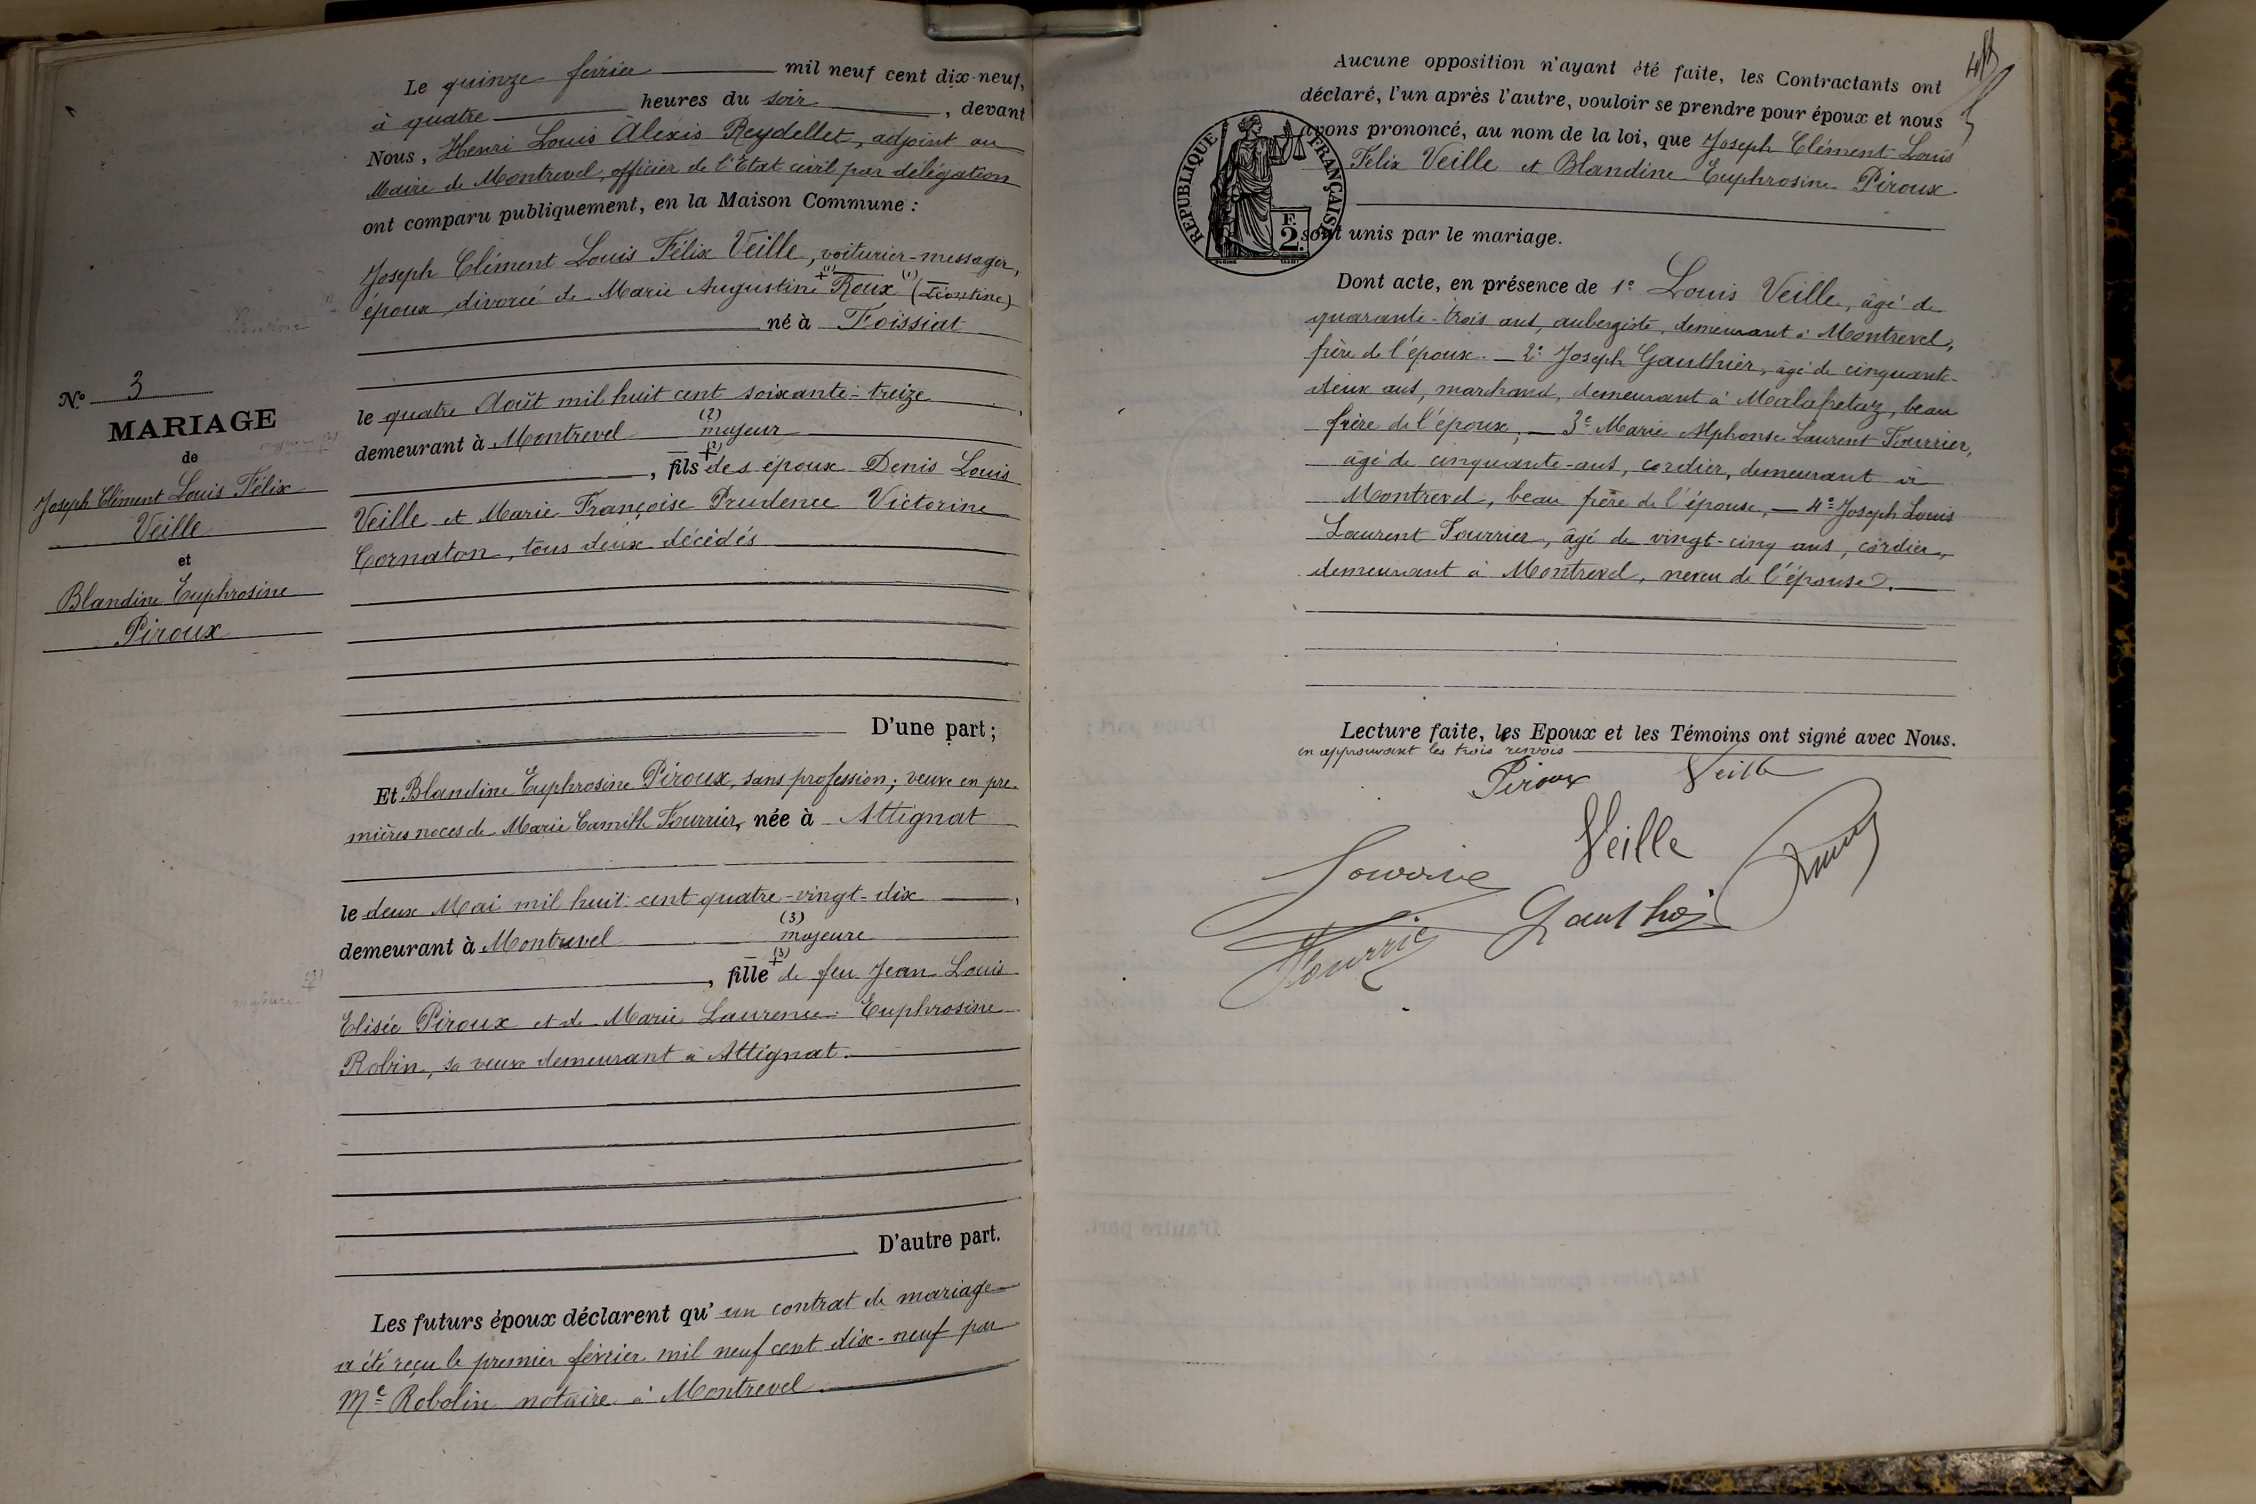 N.º 3
MARIAGE
de
Joseph Clément Louis Félix
Veille
et
Blandine Euphrosine
Piroux
Le quinze février mil neuf cent dix-neuf,
à quatre heures du soir, devant
Nous, Henri Louis Alexis Reydellet, adjoint au
Maire de Montrevel, officier de l'Etat civil par délégation
ont comparu publiquement, en la Maison Commune :
Joseph Clément Louis Félix Veille, voiturier-messager,
époux divorcé de Marie Augustine (1) Roux (1) (Léontine)
né à Foissiat
le quatre Août mil huit cent soixante-treize,
(2)
demeurant à Montrevel majeur
, fils (2) des époux Denis Louis
Veille et Marie Françoise Prudence Victorine
Cornaton, tous deux décédés
D'une part ;
Et Blandine Euphrosine Piroux, sans profession ; veuve en pre-
mières noces de Marie Camille Fourrier, née à Attignat
le deux Mai mil huit cent quatre-vingt-dix,
(3)
demeurant à Montrevel majeure
, fille (3) de feu Jean Louis
Elisée Piroux et de Marie Laurence Euphrosine
Robin, sa veuve demeurant à Attignat.
D'autre part.
Les futurs époux déclarent qu'un contrat de mariage
a été reçu le premier février mil neuf cent dix-neuf par
Me Robolin notaire à Montrevel.
Aucune opposition n'ayant été faite, les Contractants ont
déclaré, l'un après l'autre, vouloir se prendre pour époux et nous
avons prononcé, au nom de la loi, que Joseph Clément Louis
Félix Veille et Blandine Euphrosine Piroux
sont unis par le mariage.
RÉPUBLIQUE FRANÇAISE
F.
2.
Dont acte, en présence de 1º Louis Veille, âgé de
quarante-trois ans, aubergiste, demeurant à Montrevel,
frère de l'époux. — 2º Joseph Gauthier, âgé de cinquante-
deux ans, marchand, demeurant à Malafretaz, beau
frère de l'époux, — 3º Marie Alphonse Laurent Fourrier,
âgé de cinquante-ans, cordier, demeurant à
Montrevel, beau frère de l'épouse, — 4º Joseph Louis
Laurent Fourrier, âgé de vingt-cinq ans, cordier,
demeurant à Montrevel, neveu de l'épouse.
Lecture faite, les Epoux et les Témoins ont signé avec Nous.
en approuvant les trois renvois
Piroux Veille
Veille
Gauthier
Fourrier